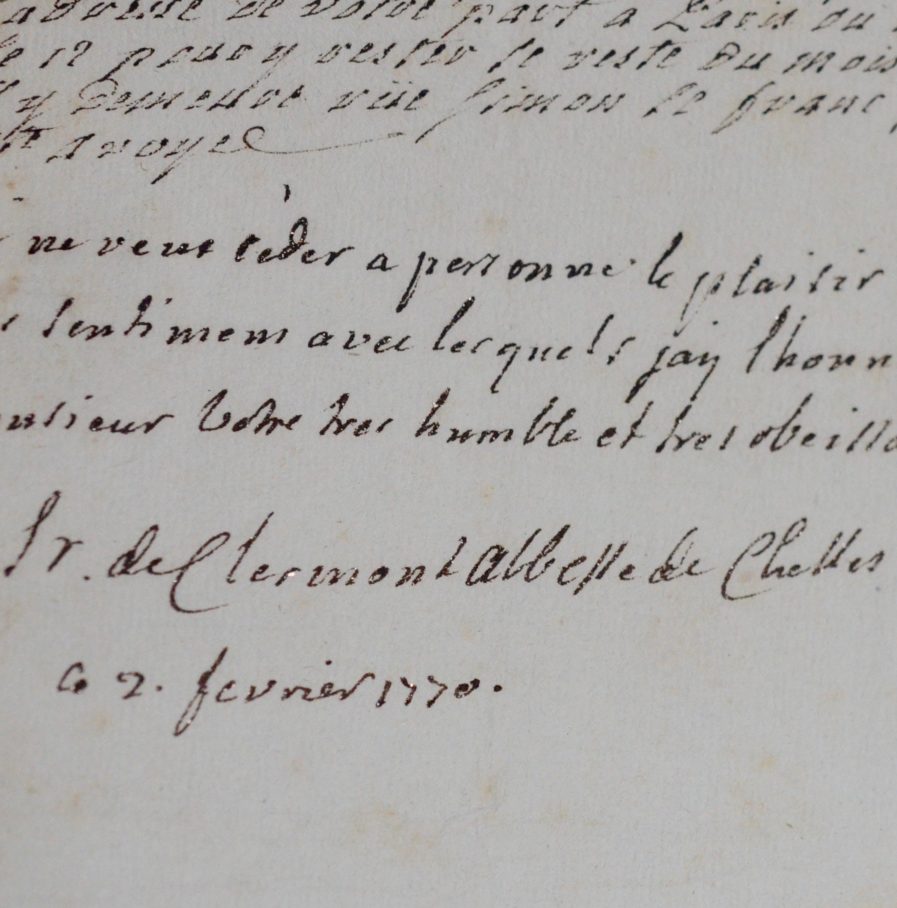 adresse de votre part a Paris ou
le 12 pour y rester le reste du mois
y demeure rüe Simon le franc
Ste avoye
ne veut céder a personne le plaisir
sentimens avec lesquels jay lhonn
onsieur Votre tres humble et tres obeissa
Sr. de Clermont Abbesse de Chelles
ce 2. fevrier 1770.